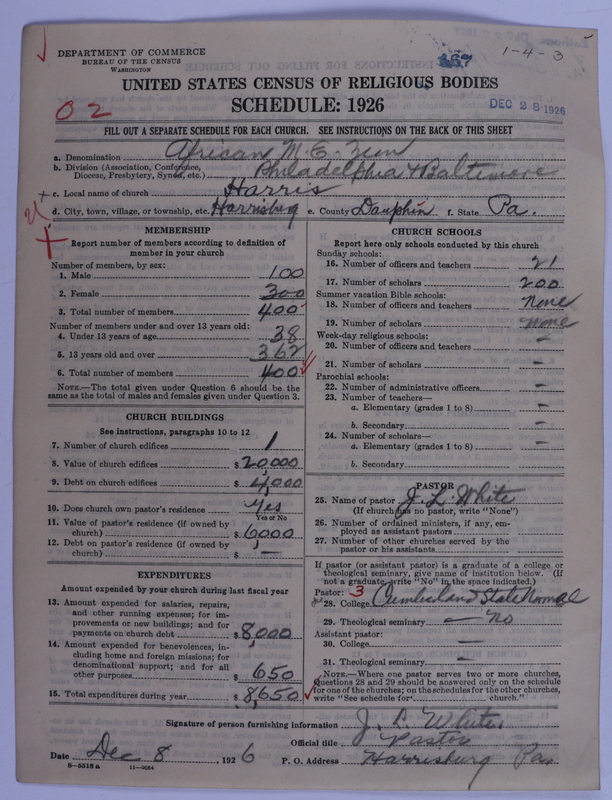 DEPARTMENT OF COMMERCE
BUREAU OF THE CENSUS
WASHINGTON
167
1-4-3
UNITED STATES CENSUS OF RELIGIOUS BODIES
SCHEDULE: 1926
02
DEC 28 1926
FILL OUT A SEPARATE SCHEDULE FOR EACH CHURCH. SEE INSTRUCTIONS ON THE BACK OF THIS SHEET
a. Denomination African M. E. Zion
b. Division (Association, Conference, Diocese, Presbytery, Synod, etc.) Philadelphia & Baltimore
c. Local name of church Harris
d. City, town, village, or township, etc. Harrisburg e. County Dauphin f. State Pa.
MEMBERSHIP
Report number of members according to definition of member in your church
Number of members, by sex:
1. Male 100
2. Female 300
3. Total number of members 400
Number of members under and over 13 years old:
4. Under 13 years of age 38
5. 13 years old and over 362
6. Total number of members 400
NOTE.—The total given under Question 6 should be the same as the total of males and females given under Question 3.
CHURCH BUILDINGS
See instructions, paragraphs 10 to 12
7. Number of church edifices 1
8. Value of church edifices $ 20,000
9. Debt on church edifices $ 4,000
10. Does church own pastor's residence Yes
Yes or No
11. Value of pastor's residence (if owned by church) $ 6000
12. Debt on pastor's residence (if owned by church) $ —
EXPENDITURES
Amount expended by your church during last fiscal year
13. Amount expended for salaries, repairs, and other running expenses; for improvements or new buildings; and for payments on church debt $ 8,000
14. Amount expended for benevolences, including home and foreign missions; for denominational support; and for all other purposes $ 650
15. Total expenditures during year $ 8,650
CHURCH SCHOOLS
Report here only schools conducted by this church
Sunday schools:
16. Number of officers and teachers 21
17. Number of scholars 200
Summer vacation Bible schools:
18. Number of officers and teachers None
19. Number of scholars None
Week-day religious schools:
20. Number of officers and teachers —
21. Number of scholars —
Parochial schools:
22. Number of administrative officers —
23. Number of teachers—
a. Elementary (grades 1 to 8) —
b. Secondary —
24. Number of scholars—
a. Elementary (grades 1 to 8) —
b. Secondary
PASTOR
25. Name of pastor J. L. White
(If church has no pastor, write "None")
26. Number of ordained ministers, if any, employed as assistant pastors
27. Number of other churches served by the pastor or his assistants
If pastor (or assistant pastor) is a graduate of a college or theological seminary, give name of institution below. (If not a graduate, write "No" in the space indicated.)
Pastor: 3
28. College Cumberland State Normal
29. Theological seminary — No
Assistant pastor:
30. College —
31. Theological seminary —
NOTE.—Where one pastor serves two or more churches, Questions 28 and 29 should be answered only on the schedule for one of the churches; on the schedules for the other churches, write "See schedule for church."
Signature of person furnishing information J. L. White
Official title Pastor
Date Dec 8, 1926 P. O. Address Harrisburg Pa
8—5518 a 11—9054